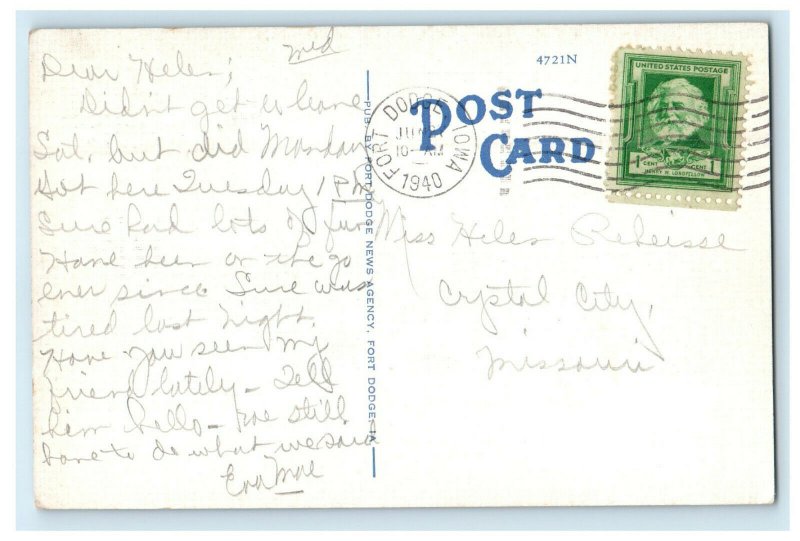 Wed
Dear Helen;
Didn't get to leave
Sat. but did Monday
Got here Tuesday 1 PM
Sure had lots of fun
Have been on the go
ever since Sure was
tired last night.
Have you seen my
friend lately - Tell
him hello - we still
have to do what we said
Eva Mae
PUB. BY FORT DODGE NEWS AGENCY, FORT DODGE, IA.
4721N
POST
CARD
FORT DODGE IOWA
10 - AM
1940
UNITED STATES POSTAGE
1 CENT CENT 1
HENRY W. LONGFELLOW
Miss Helen
Crystal City,
Missouri